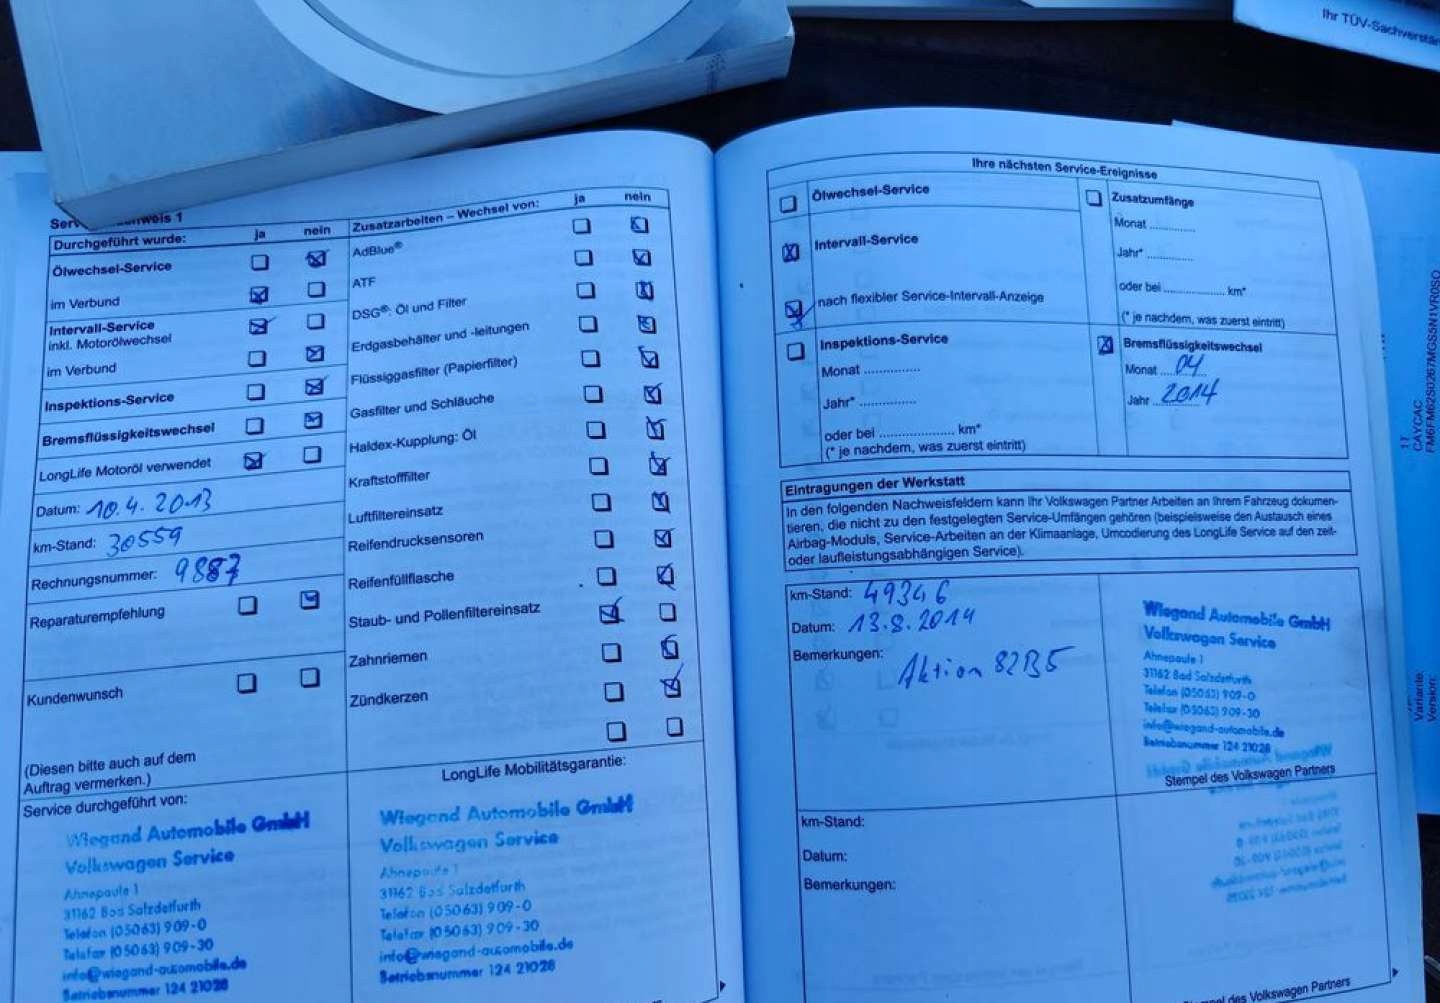 Ihr TÜV-Sachverstän
Durchgeführt wurde: ja nein
Ölwechsel-Service
im Verbund
Intervall-Service
inkl. Motorölwechsel
im Verbund
Inspektions-Service
Bremsflüssigkeitswechsel
LongLife Motoröl verwendet
Datum: 10.4.2013
km-Stand: 30559
Rechnungsnummer: 9887
Reparaturempfehlung
Kundenwunsch
(Diesen bitte auch auf dem
Auftrag vermerken.)
Service durchgeführt von:
Wiegand Automobile GmbH
Volkswagen Service
Ahnepaule 1
31162 Bad Salzdetfurth
Telefon (05063) 909-0
Telefax (05063) 909-30
info@wiegand-automobile.de
Betriebsnummer 124 21028
Zusatzarbeiten – Wechsel von: ja nein
AdBlue®
ATF
DSG®: Öl und Filter
Erdgasbehälter und -leitungen
Flüssiggasfilter (Papierfilter)
Gasfilter und Schläuche
Haldex-Kupplung: Öl
Kraftstofffilter
Luftfiltereinsatz
Reifendrucksensoren
Reifenfüllflasche
Staub- und Pollenfiltereinsatz
Zahnriemen
Zündkerzen
LongLife Mobilitätsgarantie:
Wiegand Automobile GmbH
Volkswagen Service
Ahnepaule 1
31162 Bad Salzdetfurth
Telefon (05063) 909-0
Telefax (05063) 909-30
info@wiegand-automobile.de
Betriebsnummer 124 21028
Ihre nächsten Service-Ereignisse
Ölwechsel-Service
Intervall-Service
nach flexibler Service-Intervall-Anzeige
Inspektions-Service
Monat ...............
Jahr* ...............
oder bei .................... km*
(* je nachdem, was zuerst eintritt)
Zusatzumfänge
Monat ............
Jahr* ............
oder bei .................... km*
(* je nachdem, was zuerst eintritt)
Bremsflüssigkeitswechsel
Monat 04
Jahr 2014
Eintragungen der Werkstatt
In den folgenden Nachweisfeldern kann Ihr Volkswagen Partner Arbeiten an Ihrem Fahrzeug dokumen-
tieren, die nicht zu den festgelegten Service-Umfängen gehören (beispielsweise den Austausch eines
Airbag-Moduls, Service-Arbeiten an der Klimaanlage, Umcodierung des LongLife Service auf den zeit-
oder laufleistungsabhängigen Service).
km-Stand: 49346
Datum: 13.8.2014
Bemerkungen: Aktion 82B5
Wiegand Automobile GmbH
Volkswagen Service
Ahnepaule 1
31162 Bad Salzdetfurth
Telefon (05063) 909-0
Telefax (05063) 909-30
info@wiegand-automobile.de
Betriebsnummer 124 21028
Stempel des Volkswagen Partners
km-Stand:
Datum:
Bemerkungen:
Stempel des Volkswagen Partners
1T
CAYCAC
FM6FM62S0267MGS5N1VR0SO
Variante:
Version: